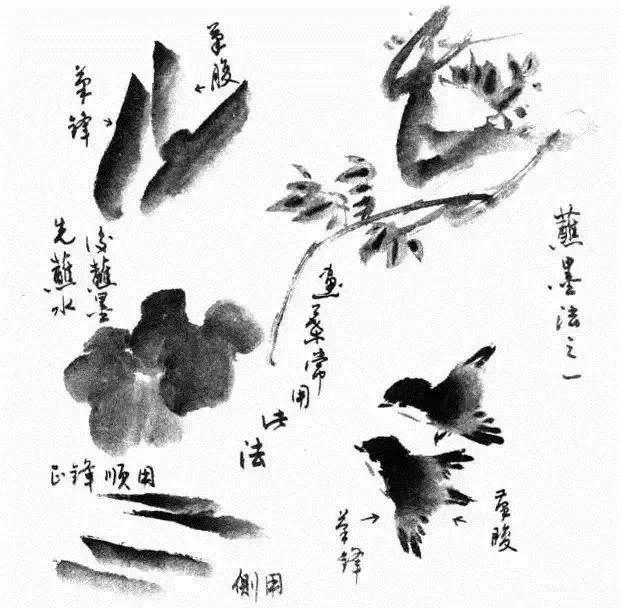 蘸墨法之一
笔腹
笔锋
先蘸水
后蘸墨
画叶常用此法
正锋顺用
侧用
笔锋
笔腹